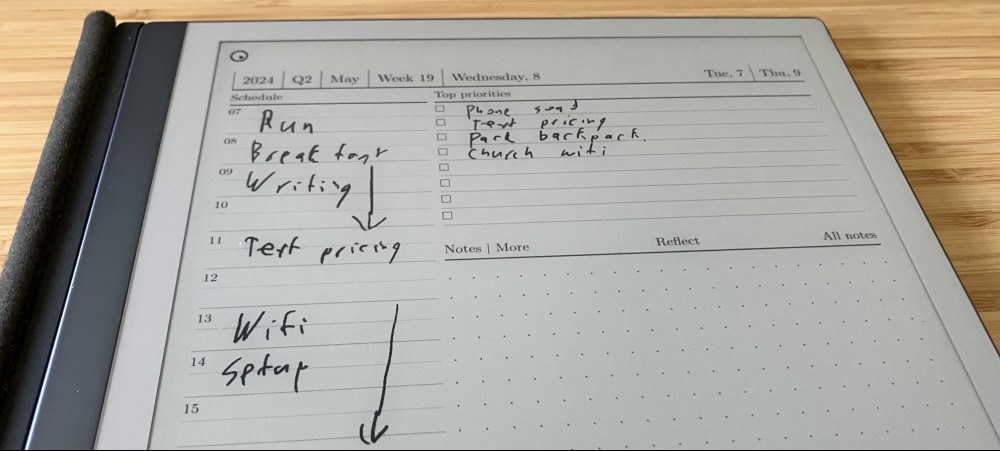 2024 | Q2 | May | Week 19 | Wednesday, 8
Tue, 7 | Thu, 9
Schedule
07 Run
08 Breakfast
09 Writing
10
11 Text pricing
12
13 Wifi
14 Setup
15
Top priorities
Phone
Text pricing
Pack backpack.
Church wifi
Notes | More
Reflect
All notes